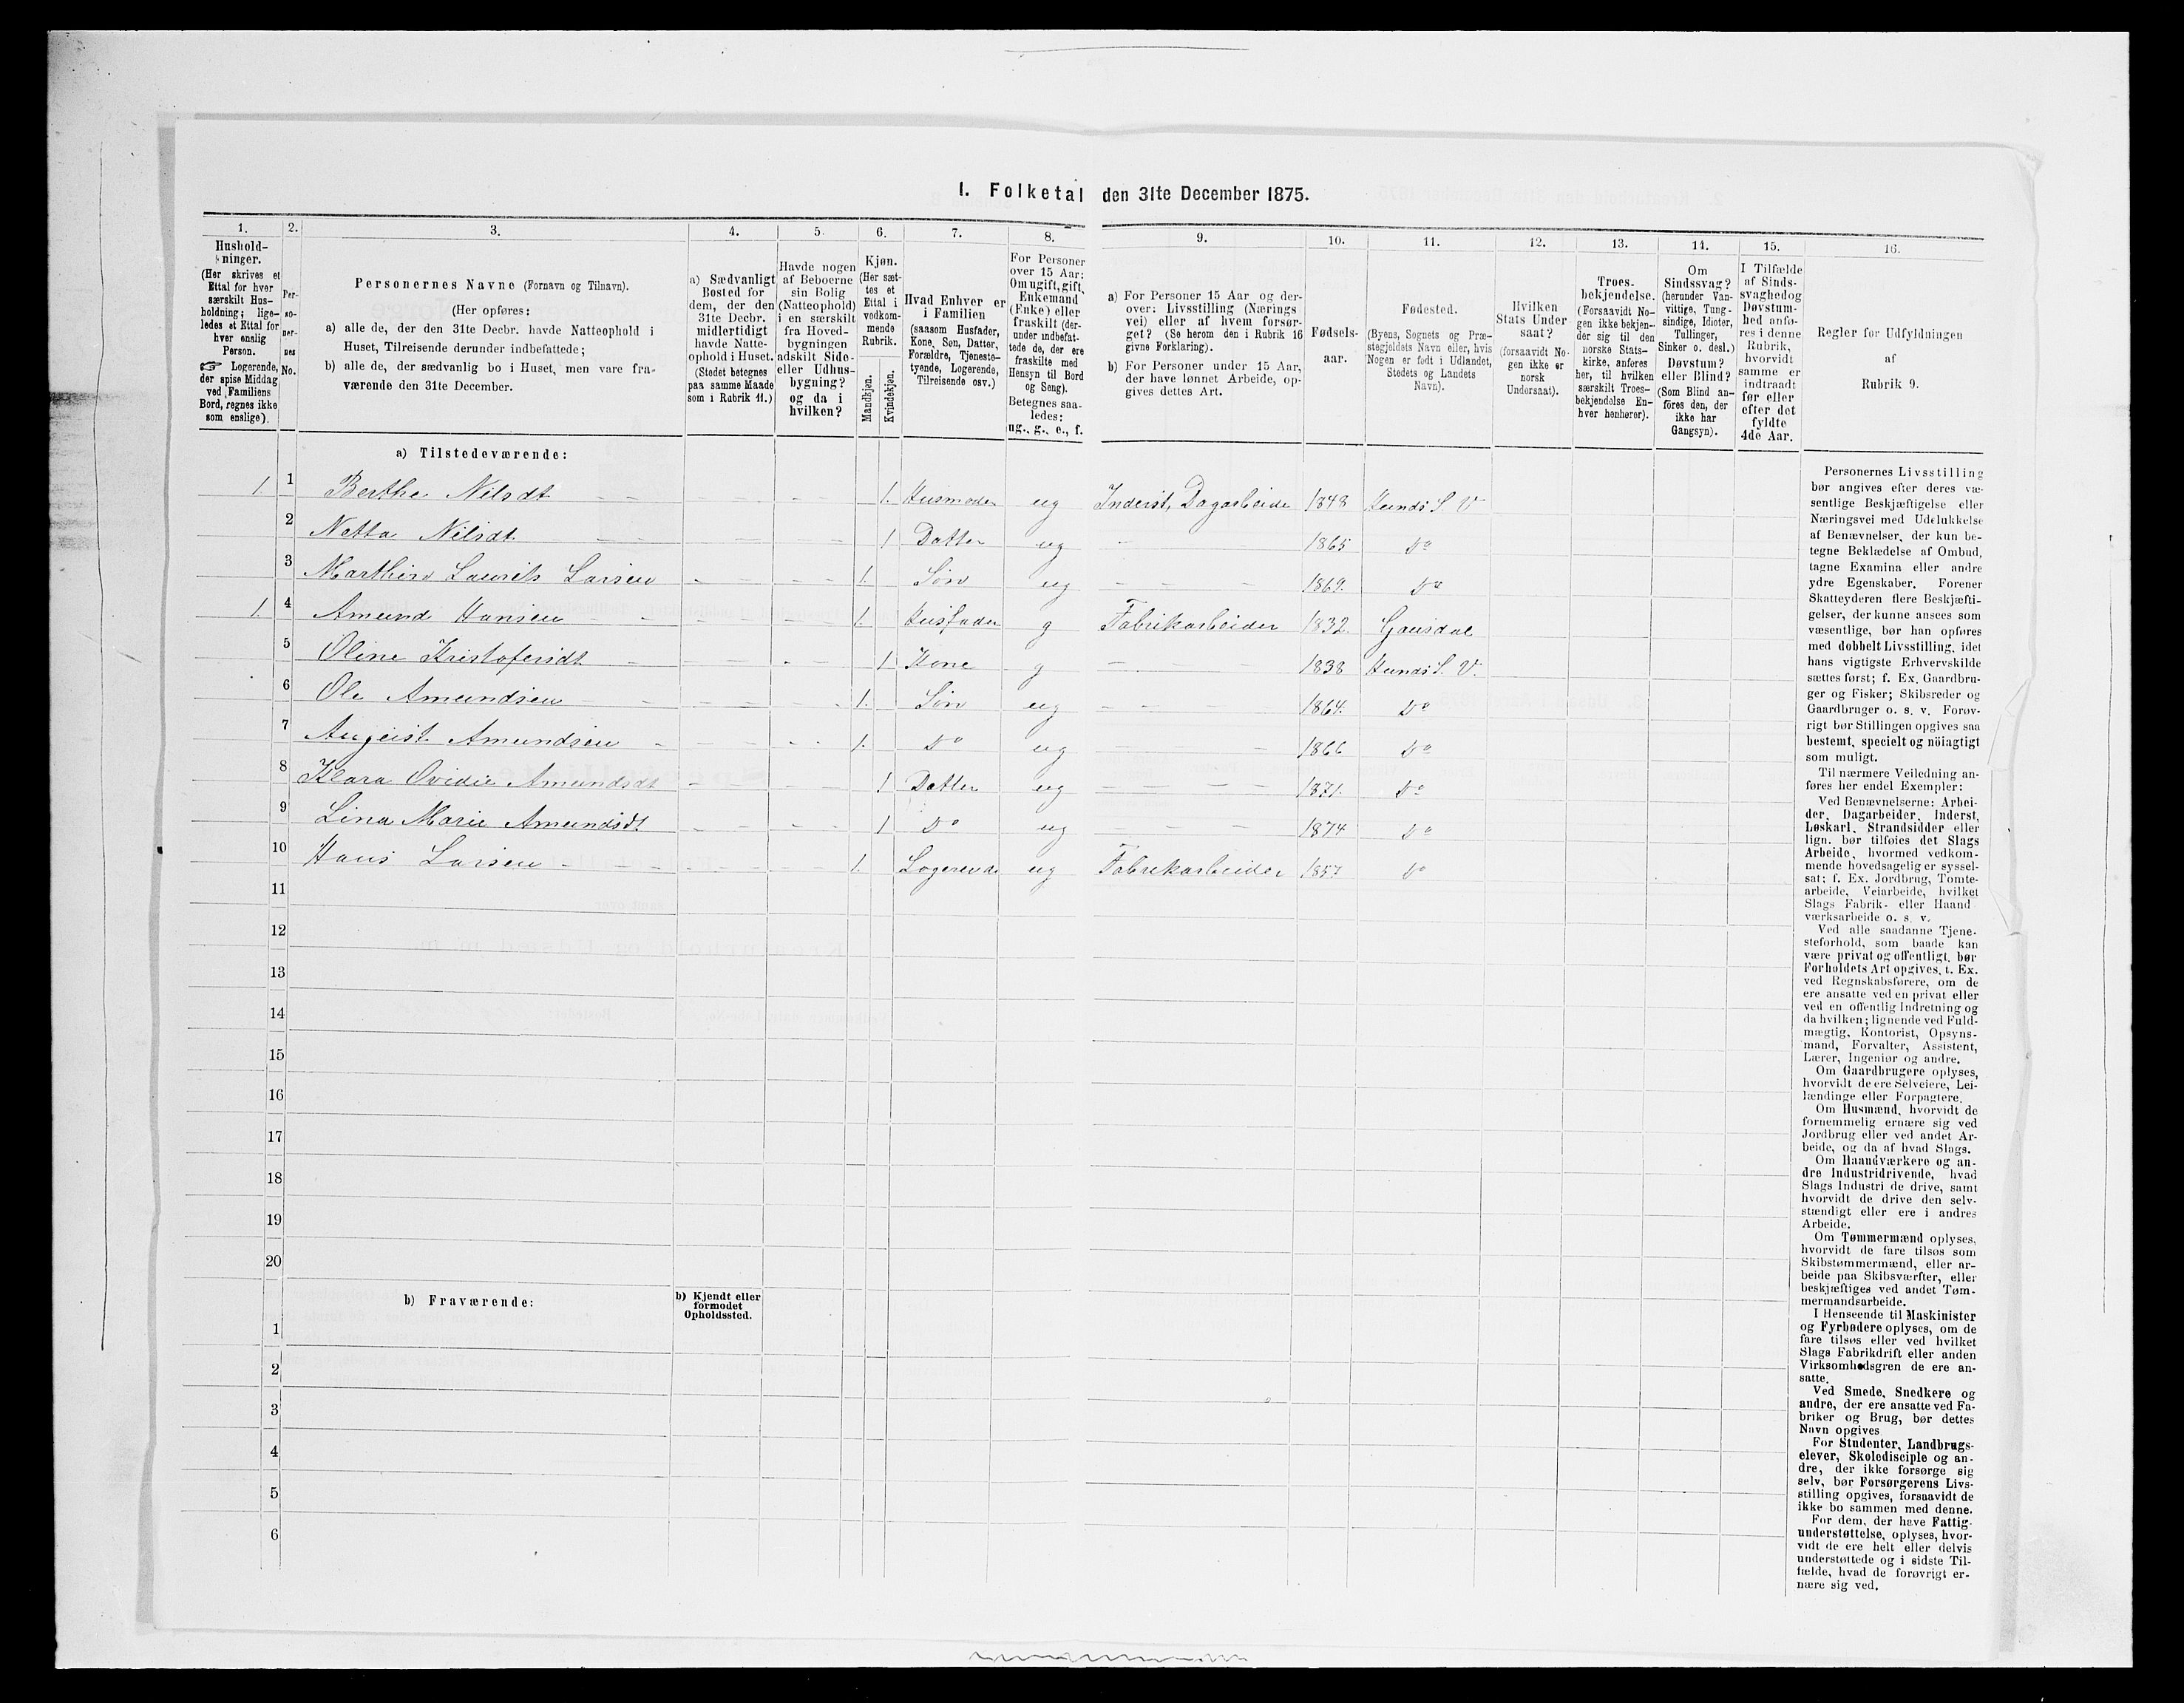 I. Folketal den 31te December 1875.
1. 2. 3. 4. 5. 6. 7. 8. 9. 10. 11. 12. 13. 14. 15. 16.
Hushold-
ninger.
(Her skrives et
Ettal for hver
særskilt Hus-
holdning; lige-
ledes et Ettal for
hver enslig
Person.
☞ Logerende,
der spise Middag
ved Familiens
Bord, regnes ikke
som enslige).
Per-
so-
ner-
nes
No.
Personernes Navne (Fornavn og Tilnavn).
(Her opføres:
a) alle de, der den 31te Decbr. havde Natteophold i
Huset, Tilreisende derunder indbefattede;
b) alle de, der sædvanlig bo i Huset, men vare fra-
værende den 31te December.
a) Sædvanligt
Bosted for
dem, der den
31te Decbr.
midlertidigt
havde Natte-
ophold i Huset.
(Stedet betegnes
paa samme Maade
som i Rubrik 11.)
Havde nogen
af Beboerne
sin Bolig
(Natteophold)
i en særskilt
fra Hoved-
bygningen
adskilt Side-
eller Udhus-
bygning?
og da i
hvilken?
Kjøn.
(Her sæt-
tes et
Ettal i
vedkom-
mende
Rubrik.
Mandkjøn.
Kvindekjøn.
Hvad Enhver er
i Familien
(saasom Husfader,
Kone, Søn, Datter,
Forældre, Tjeneste-
tyende, Logerende,
Tilreisende osv.)
For Personer
over 15 Aar:
Om ugift, gift,
Enkemand
(Enke) eller
fraskilt (der-
under indbefat-
tede de, der ere
fraskilte med
Hensyn til Bord
og Seng).
Betegnes saa-
ledes:
ug., g., e., f.
a) For Personer 15 Aar og der-
over: Livsstilling (Nærings
vei) eller af hvem forsør-
get? (Se herom den i Rubrik 16
givne Forklaring).
b) For Personer under 15 Aar,
der have lønnet Arbeide, op-
gives dettes Art.
Fødsels-
aar.
Fødested.
(Byens, Sognets og Præ-
stegjeldets Navn eller, hvis
Nogen er født i Udlandet,
Stedets og Landets
Navn).
Hvilken
Stats Under
saat?
(forsaavidt No-
gen ikke er
norsk
Undersaat).
Troes-
bekjendelse.
(Forsaavidt No-
gen ikke bekjen-
der sig til den
norske Stats-
kirke, anføres
her, til hvilken
særskilt Troes-
bekjendelse En-
hver henhører).
Om
Sindssvag?
(herunder Van-
vittige, Tung-
sindige, Idioter,
Tullinger,
Sinker o. desl.)
Døvstum?
eller Blind?
(Som Blind an-
föres den, der
ikke har
Gangsyn).
I Tilfælde
af Sinds-
svaghed og
Døvstum-
hed anfø-
res i denne
Rubrik,
hvorvidt
samme er
indtraadt
før eller
efter det
fyldte
4de Aar.
Regler for Udfyldningen
af
Rubrik 9.
a) Tilstedeværende:
1. 1 Berthe Nilsdt 1. Husmoder ug Inderst, Dagarbeide 1848 Hunds S. V
2 Netta Nilsdt 1 Datter ug 1865 Do
3 Marthin Laurits Larsen 1. Søn ug 1869. Do
1. 4 Amund Hansen 1. Husfader g Fabrikarbeider 1832. Gausdal
5 Oline Kristofersdt 1 Kone g 1838 Hunds S. V.
6 Ole Amundsen 1. Søn ug 1864. Do
7 August Amundsen 1. Do ug 1866 Do
8 Klara Ovidie Amundsdt 1 Datter ug 1871. Do
9 Lina Marie Amundsdt 1 Do ug 1874 Do
10 Hans Larsen 1. Logerende ug Fabrikarbeider 1857 Do
11
12
13
14
15
16
17
18
19
20
b) Fraværende:
b) Kjendt eller
formodet
Opholdssted.
1
2
3
4
5
6
Personernes Livsstilling
bør angives efter deres væ-
sentlige Beskjæftigelse eller
Næringsvei med Udelukkelse
af Benævnelser, der kun be-
tegne Beklædelse af Ombud,
tagne Examina eller andre
ydre Egenskaber. Forener
Skatteyderen flere Beskjæfti-
gelser, der kunne ansees som
væsentlige, bør han opføres
med dobbelt Livsstilling, idet
hans vigtigste Erhvervskilde
sættes først; f. Ex. Gaardbru-
ger og Fisker; Skibsreder og
Gaardbruger o. s. v. Forøv-
rigt bør Stillingen opgives saa
bestemt, specielt og nöiagtigt
som muligt.
Til nærmere Veiledning an-
føres her endel Exempler:
Ved Benævnelserne: Arbei-
der, Dagarbeider, Inderst,
Løskarl, Strandsidder eller
lign. bør tilføies det Slags
Arbeide, hvormed vedkom-
mende hovedsagelig er syssel-
sat; f. Ex. Jordbrug, Tomte-
arbeide, Veiarbeide, hvilket
Slags Fabrik- eller Haand
værksarbeide o. s. v.
Ved alle saadanne Tjene-
steforhold, som baade kan
være privat og offentligt, bør
Forholdets Art opgives, t. Ex.
ved Regnskabsførere, om de
ere ansatte ved en privat eller
ved en offentlig Indretning og
da hvilken; lignende ved Fuld-
mægtig, Kontorist, Opsyns-
mand, Forvalter, Assistent,
Lærer, Ingeniør og andre.
Om Gaardbrugere oplyses,
hvorvidt de ere Selveiere, Lei-
lændinge eller Forpagtere.
Om Husmænd, hvorvidt de
fornemmelig ernære sig ved
Jordbrug eller ved andet Ar-
beide, og da af hvad Slags.
Om Haandværkere og an-
dre Industridrivende, hvad
Slags Industri de drive, samt
hvorvidt de drive den selv-
stændigt eller ere i andres
Arbeide.
Om Tømmermænd oplyses,
hvorvidt de fare tilsøs som
Skibstømmermænd, eller ar-
beide paa Skibsværfter, eller
beskjæftiges ved andet Tøm-
mermandsarbeide.
I Henseende til Maskinister
og Fyrbødere oplyses, om de
fare tilsøs eller ved hvilket
Slags Fabrikdrift eller anden
Virksomhedsgren de ere an-
satte.
Ved Smede, Snedkere og
andre, der ere ansatte ved Fa-
briker og Brug, bør dettes
Navn opgives
For Studenter, Landbrugs-
elever, Skoledisciple og an-
dre, der ikke forsørge sig
selv, bør Forsørgerens Livs-
stilling opgives, forsaavidt de
ikke bo sammen med denne.
For dem, der have Fattig-
understøttelse, oplyses, hvor-
vidt de ere helt eller delvis
understøttede og i sidste Til-
fælde, hvad de forøvrigt er-
nære sig ved.